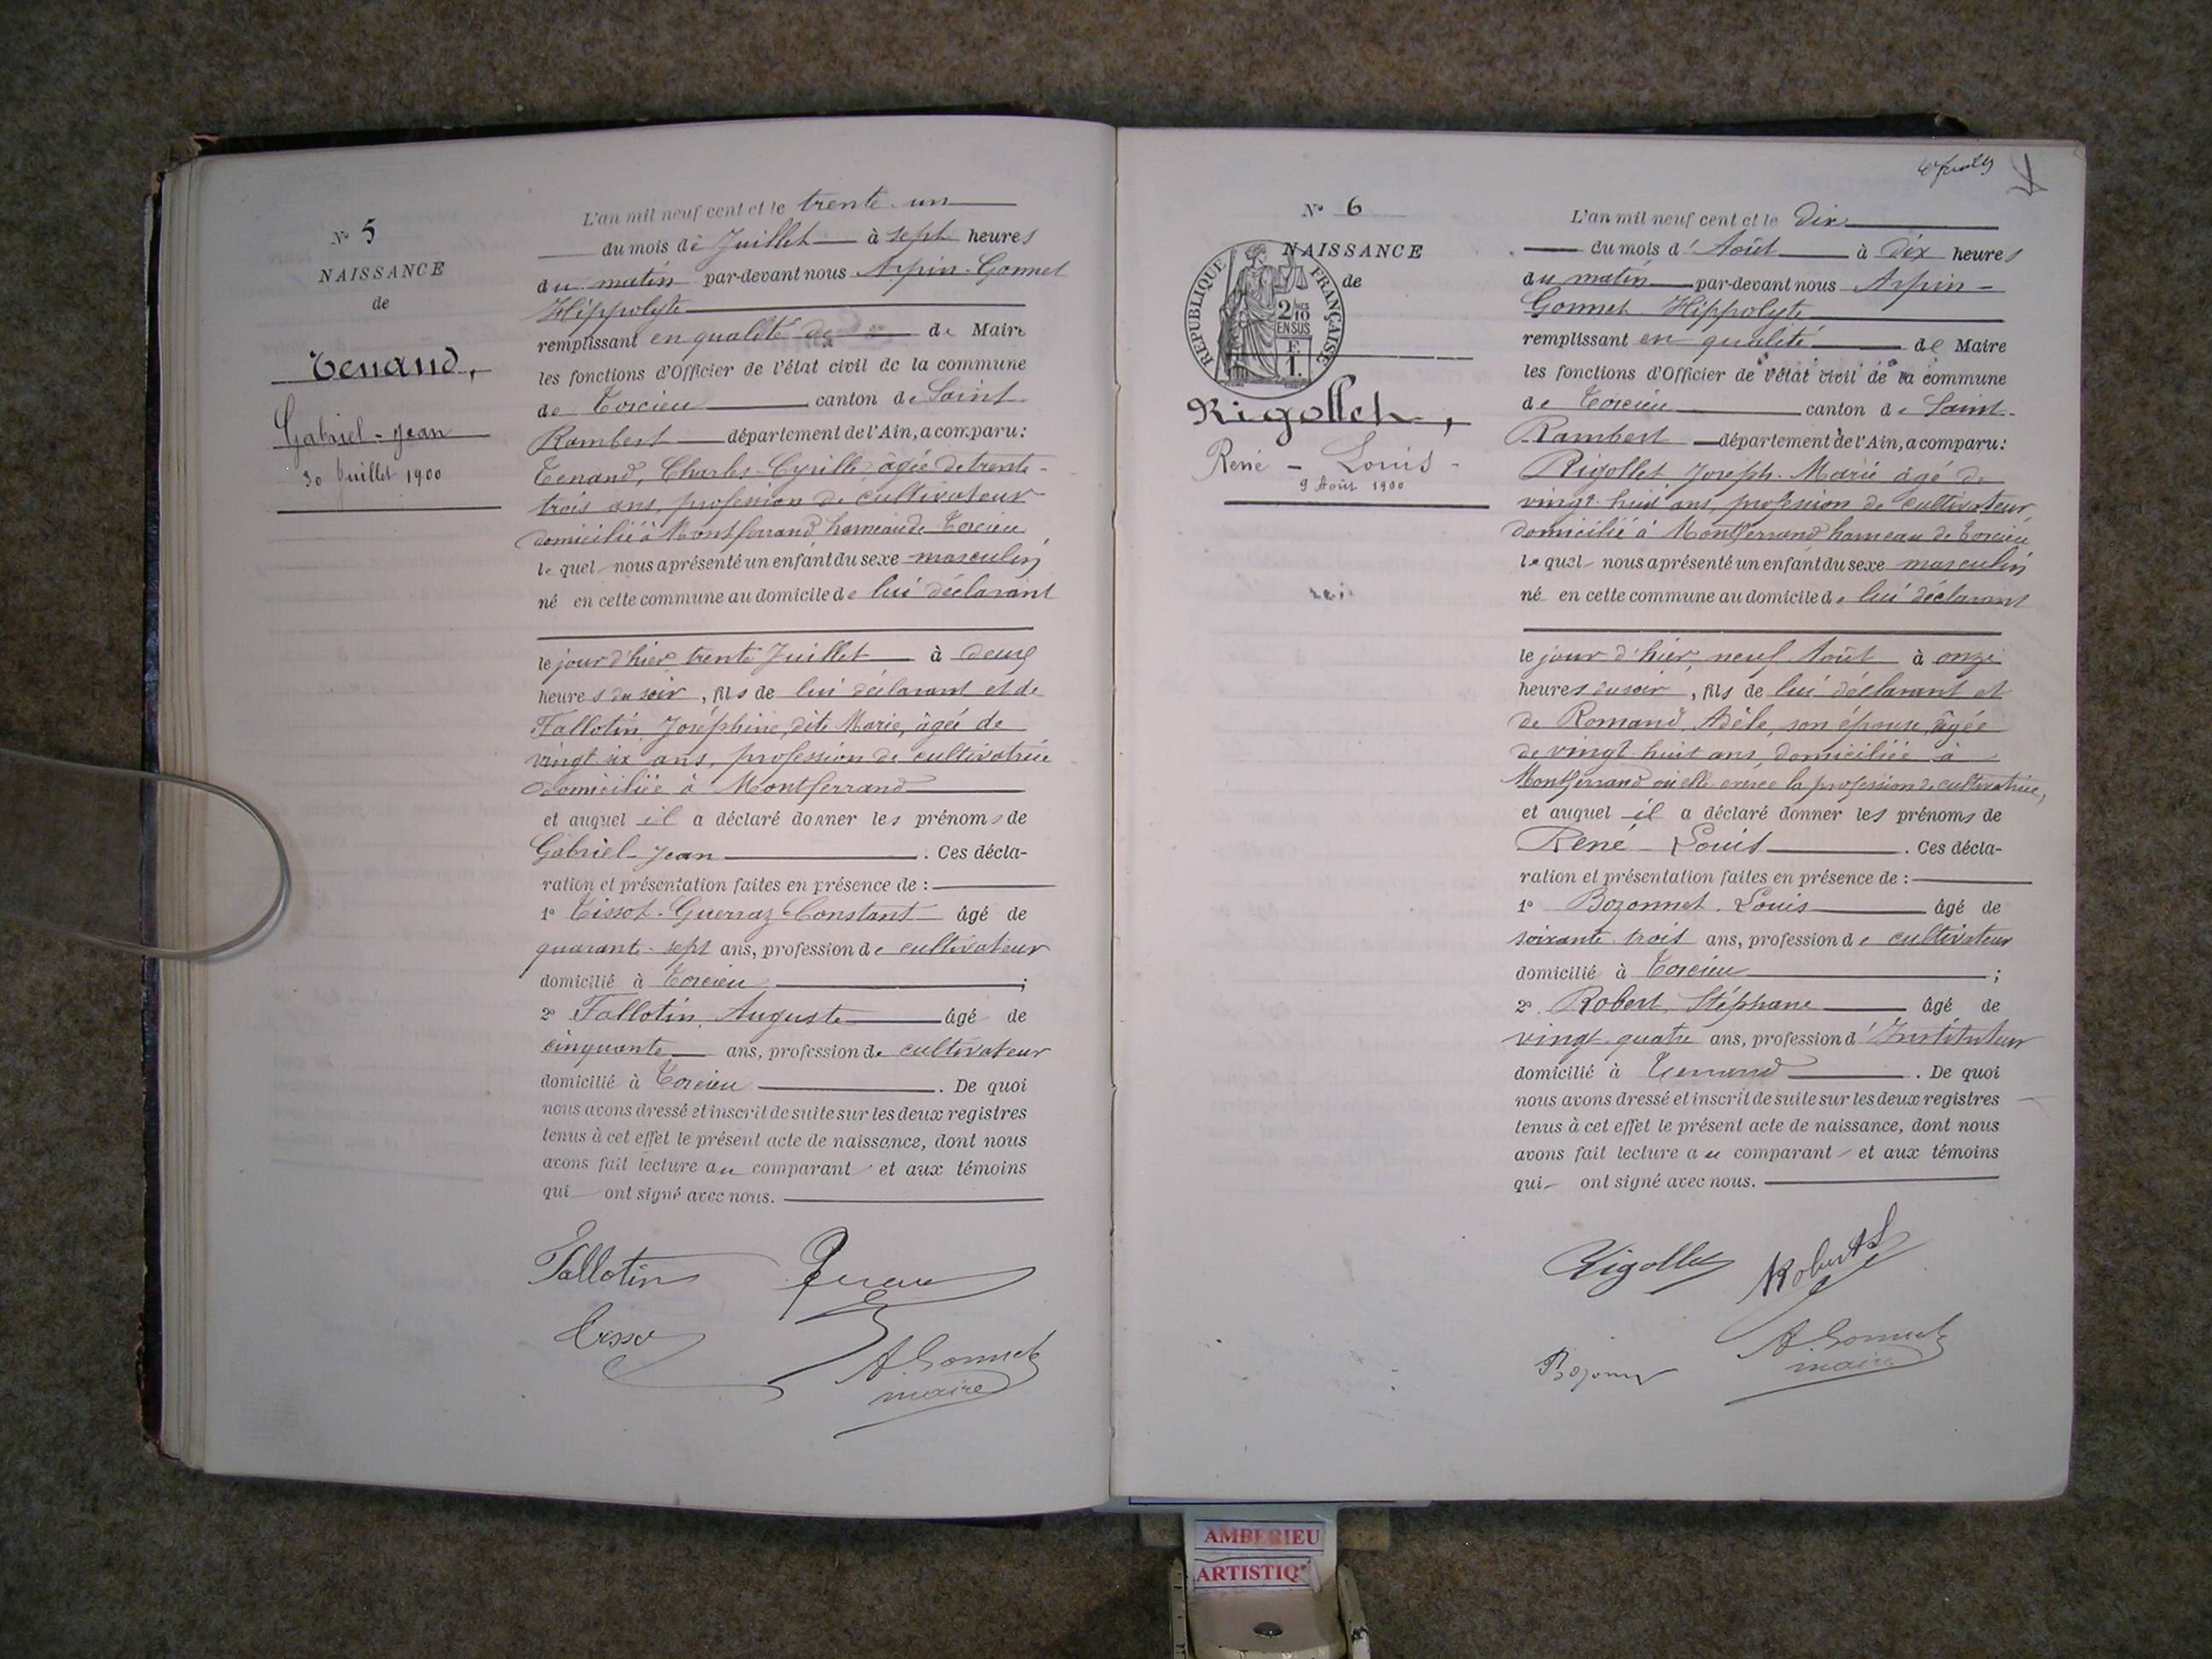 N° 5
NAISSANCE
de
Tenand,
Gabriel-Jean
30 Juillet 1900
L'an mil neuf cent et le trente un
du mois de Juillet à sept heures
du matin par-devant nous Arpin-Gonnet
Hippolyte
remplissant en qualité de de Maire
les fonctions d'Officier de l'état civil de la commune
de Torcieu canton de Saint-
Rambert département de l'Ain, a comparu:
Tenand, Charles-Cyrille, âgée de trente-
trois ans, profession de cultivateur
domicilié à Montferrand hameau de Torcieu
lequel nous a présenté un enfant du sexe masculin
né en cette commune au domicile de lui déclarant
le jour d'hier trente Juillet à deux
heures du soir, fils de lui déclarant et de
Tallotin, Joséphine, dite Marie, âgée de
vingt six ans, profession de cultivatrice
domiciliée à Montferrand
et auquel il a déclaré donner les prénoms de
Gabriel-Jean. Ces décla-
ration et présentation faites en présence de :
1° Tissot-Guerraz Constant âgé de
quarante-sept ans, profession de cultivateur
domicilié à Torcieu ;
2° Tallotin, Auguste âgé de
cinquante ans, profession de cultivateur
domicilié à Torcieu. De quoi
nous avons dressé et inscrit de suite sur les deux registres
tenus à cet effet le présent acte de naissance, dont nous
avons fait lecture au comparant et aux témoins
qui ont signé avec nous.
Tallotin
A. Gonnet
maire
N° 6
NAISSANCE
de
RÉPUBLIQUE FRANÇAISE
2/10
EN SUS
F.
1.
Rigollet,
René - Louis -
9 Août 1900
L'an mil neuf cent et le Dix
du mois d'Août à Dix heures
du matin par-devant nous Arpin-
Gonnet Hippolyte
remplissant en qualité de Maire
les fonctions d'Officier de l'état civil de la commune
de Torcieu canton de Saint-
Rambert département de l'Ain, a comparu:
Rigollet Joseph-Marie âgé de
vingt huit ans, profession de cultivateur
domicilié à Montferrand hameau de Torcieu
lequel nous a présenté un enfant du sexe masculin
né en cette commune au domicile de lui déclarant
le jour d'hier, neuf Août à onze
heures du soir, fils de lui déclarant et
de Romand, Adèle, son épouse, âgée
de vingt huit ans, domiciliée à
Montferrand où elle exerce la profession de cultivatrice,
et auquel il a déclaré donner les prénoms de
René Louis. Ces décla-
ration et présentation faites en présence de :
1° Bozonnet. Louis âgé de
soixante trois ans, profession de cultivateur
domicilié à Torcieu ;
2° Robert, Stéphane âgé de
vingt-quatre ans, profession d'Instituteur
domicilié à. De quoi
nous avons dressé et inscrit de suite sur les deux registres
tenus à cet effet le présent acte de naissance, dont nous
avons fait lecture au comparant et aux témoins
qui ont signé avec nous.
Rigollet
Robert S
A. Gonnet
maire
AMBERIEU
ARTISTIQ